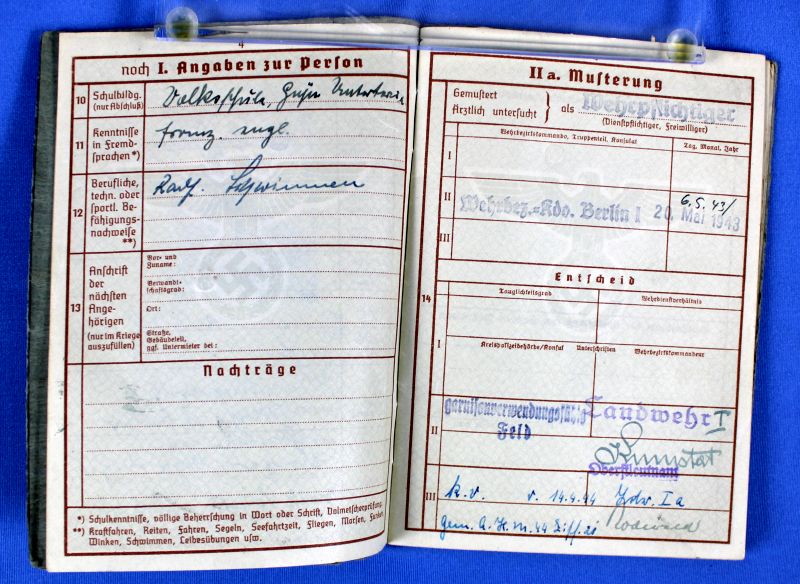 4
noch I. Angaben zur Person
10
Schulbildg.
(nur Abschluß)
Volksschule,
11
Kenntnisse
in Fremd-
sprachen *)
franz. engl.
12
Berufliche,
techn. oder
sportl. Be-
fähigungs-
nachweise
**)
Radf. Schwimmen
13
Anschrift
der
nächsten
Ange-
hörigen
(nur im Kriege
auszufüllen)
Vor- und
Zuname:
Verwandt-
schaftsgrad:
Ort:
Straße,
Gebäudeteil,
ggf. Untermieter bei:
Nachträge
*) Schulkenntnisse, völlige Beherrschung in Wort oder Schrift, Dolmetscherprüfung.
**) Kraftfahren, Reiten, Fahren, Segeln, Seefahrtzeit, Fliegen, Morsen, Funken,
Winken, Schwimmen, Leibesübungen usw.
II a. Musterung
Gemustert
Ärztlich untersucht
als Wehrpflichtiger
(Dienstpflichtiger, Freiwilliger)
Wehrbezirkskommando, Truppenteil, Konsulat
Tag, Monat, Jahr
I
II
Wehrbez.=Kdo. Berlin I
6.5.43/
20. Mai 1943
III
Entscheid
14
Tauglichkeitsgrad
Wehrdienstverhältnis
I
Kreispolizeibehörde/Konsul
Unterschriften
Wehrbezirkskommandeur
II
garnisonverwendungsfähig
Feld
Landwehr I
Oberstleutnant
III
k.v. v. 14.4.44 Ldw. I a
gem. A.H.M. 44 Ziff.